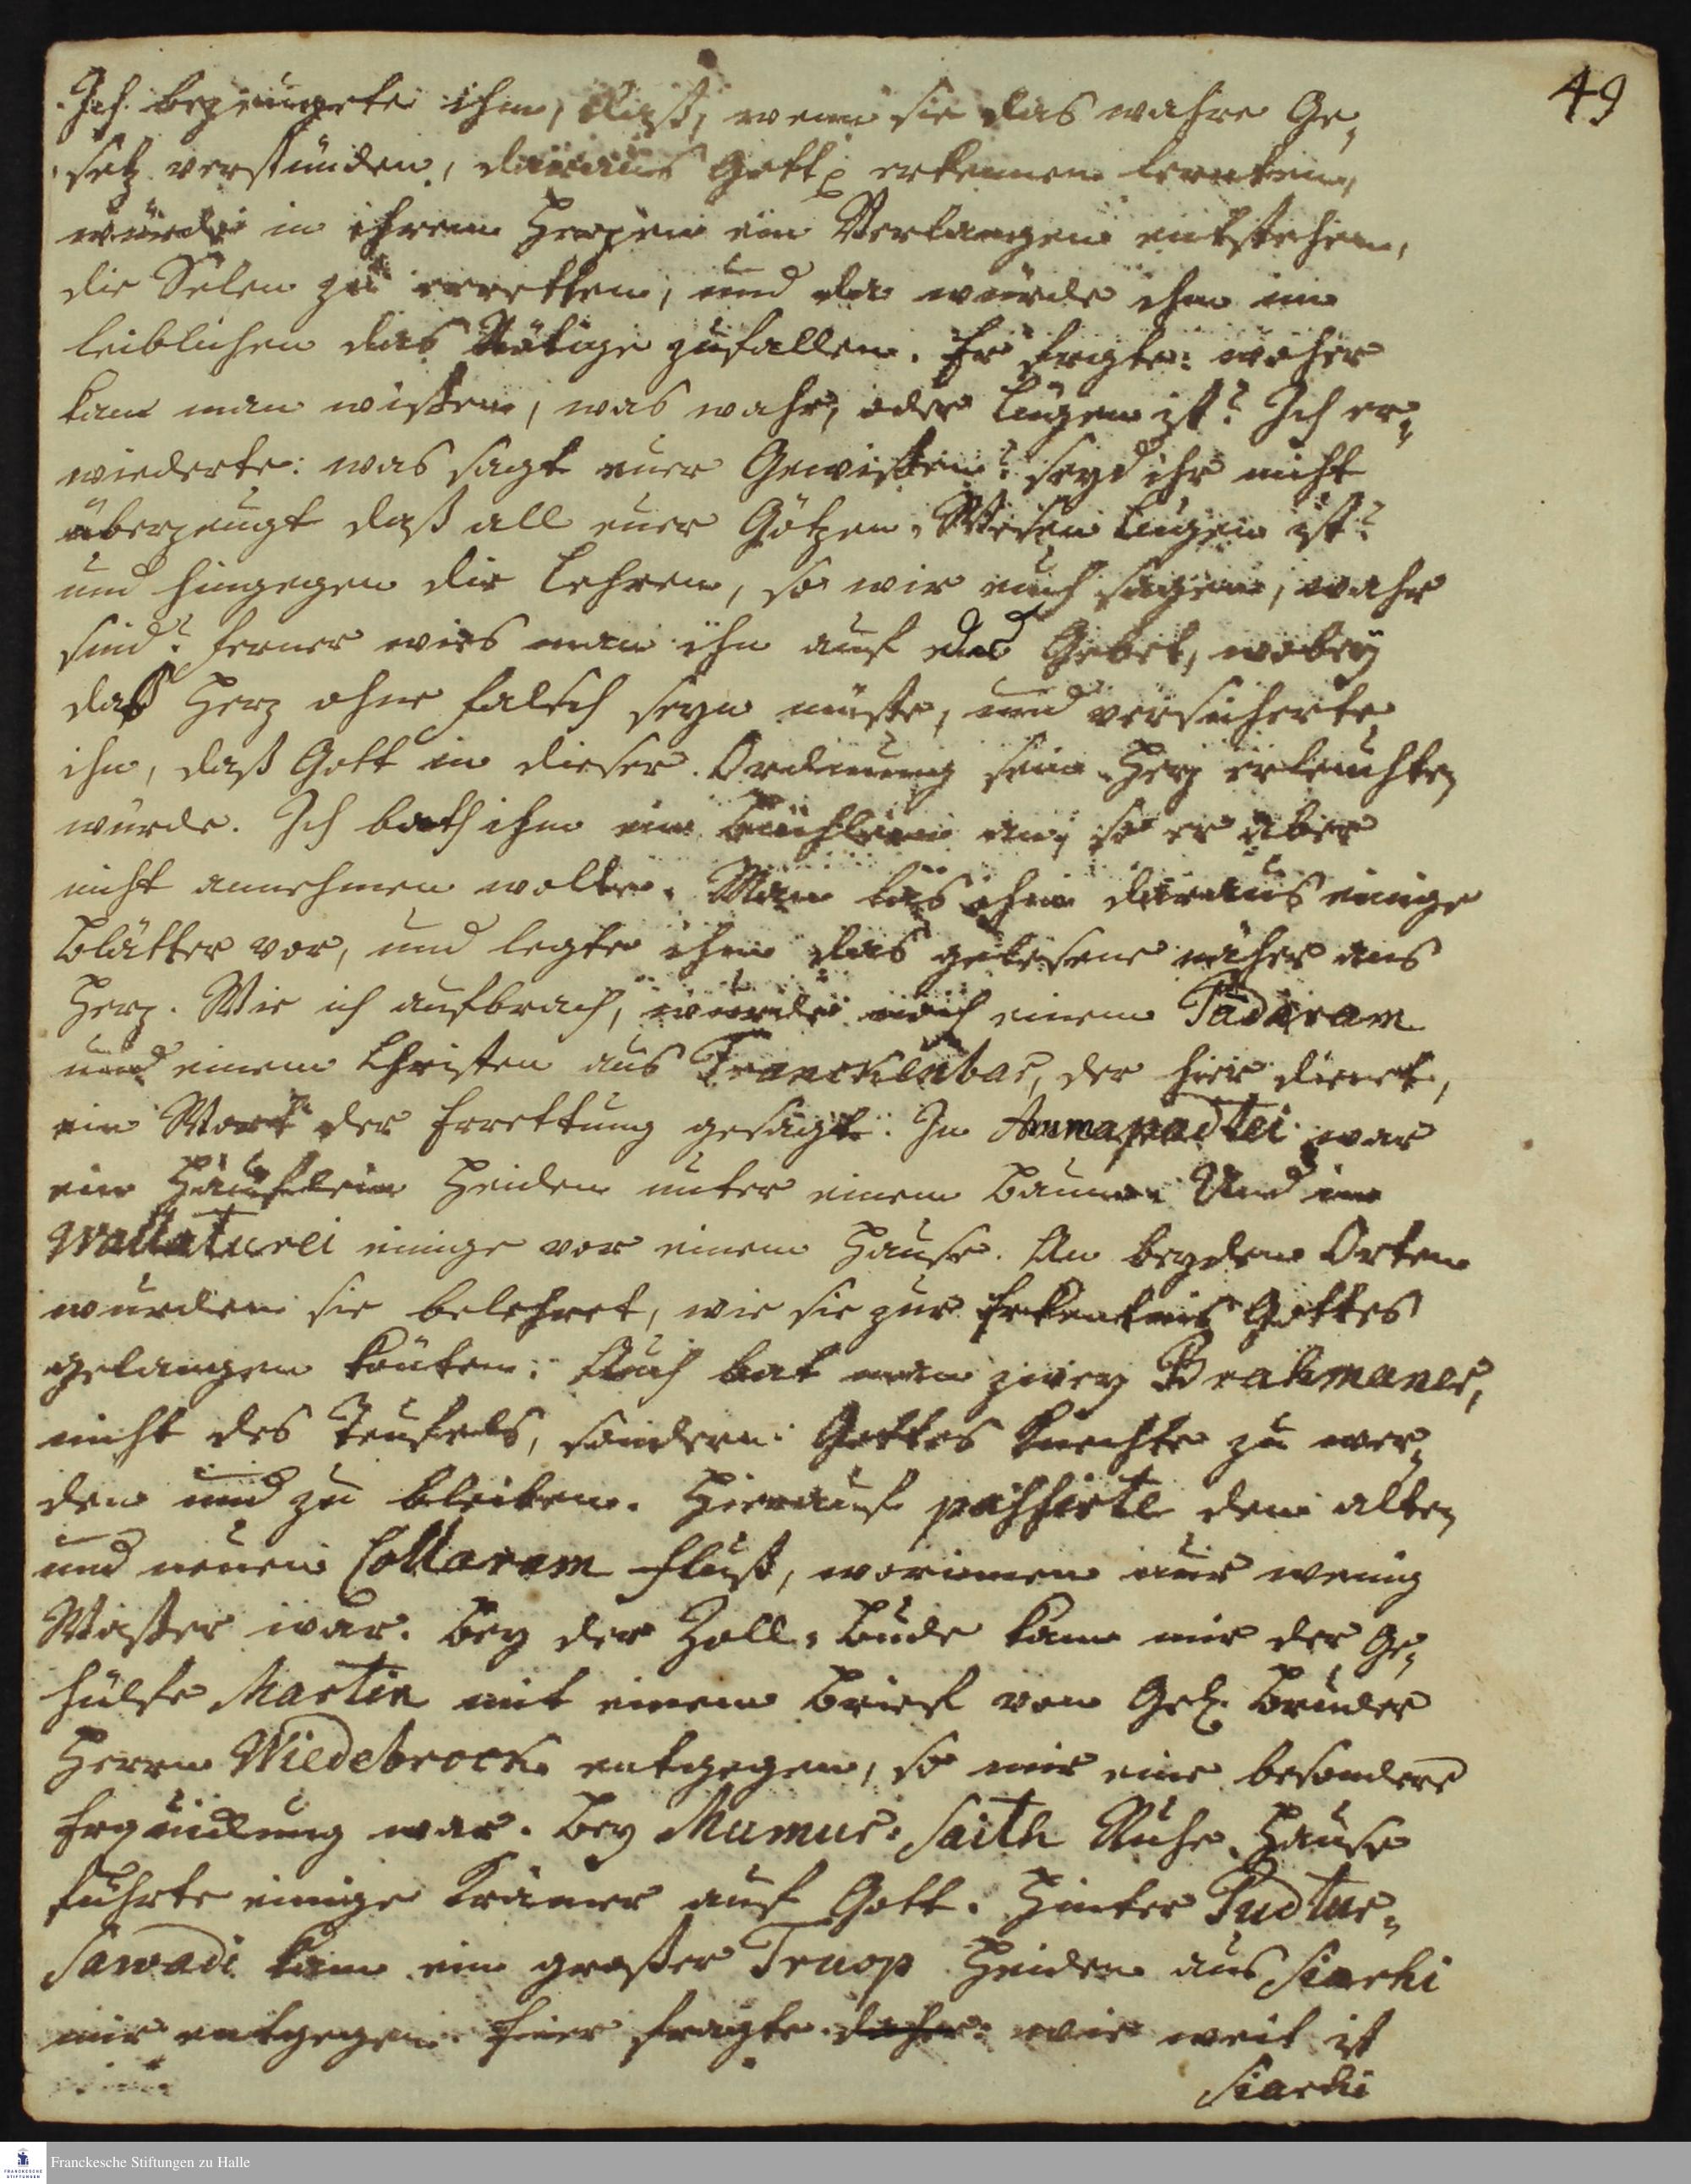 49
Ich bezeugete ihm, daß, wenn sie das wahre Ge-
setz verstünden, daraus Gott erkennen lerneten,
würde in ihrem Herzen ein Verlangen entstehen,
die Selen zu erretten, und da würde ihm im
leiblichen das Nötige zufallen. Er fragte: woher
kan man wißen, was wahr, oder Lügen ist? Ich er-
wiederte: was sagt euer Gewißen? seyd ihr nicht
überzeugt daß all euer Götzen-Wesen Lügen ist?
und hingegen die Lehren, so wir euch sagen, wahr
sind? Ferner wies man ihn auf das Gebet, wobey
das Herz ohne falsch seyn müste, und versicherte
ihn, daß Gott in dieser Ordnung sein Herz erleuchten
würde. Ich both ihm ein Büchlein an, so er aber
nicht annehmen wolte. Man las ihm daraus einige
Blätter vor, und legte ihm das gelesene näher ans
Herz. Wie ich aufbrach, wurde noch einem Padaram
und einem Christen aus Tranckenbar, der hier dienet,
ein Wort der Errettung gesagt. In Ammapadtei war
ein Häuflein Heiden unter einem Baum. Und in
Wallaturei einige vor einem Hause. An beyden Orten
wurden sie belehret, wie sie zur Erkentnis Gottes
gelangen könten. Auch bat man zwey Brahmaner,
nicht des Teufels, sondern Gottes Knechte zu wer-
den und zu bleiben. Hierauf passirte den alten
und neuen Collaram Fluß, worinnen nur wenig
Waßer war. Bey der Zoll-Bude kam mir der Ge-
hülfe Martin mit einem Brief vom Gel. Bruder
Herrn Wiedebrock entgegen, so mir eine besondere
Erquickung war. Bey Mumur-Saith Ruhe-Hause
führte einige Krämer auf Gott. Hinter Pudtur-
Sawadi kam ein großer Trupp Heiden aus Siarhi
mir entgegen. Einer fragte daher: wie weit ist
Siarhi
Franckesche Stiftungen zu Halle